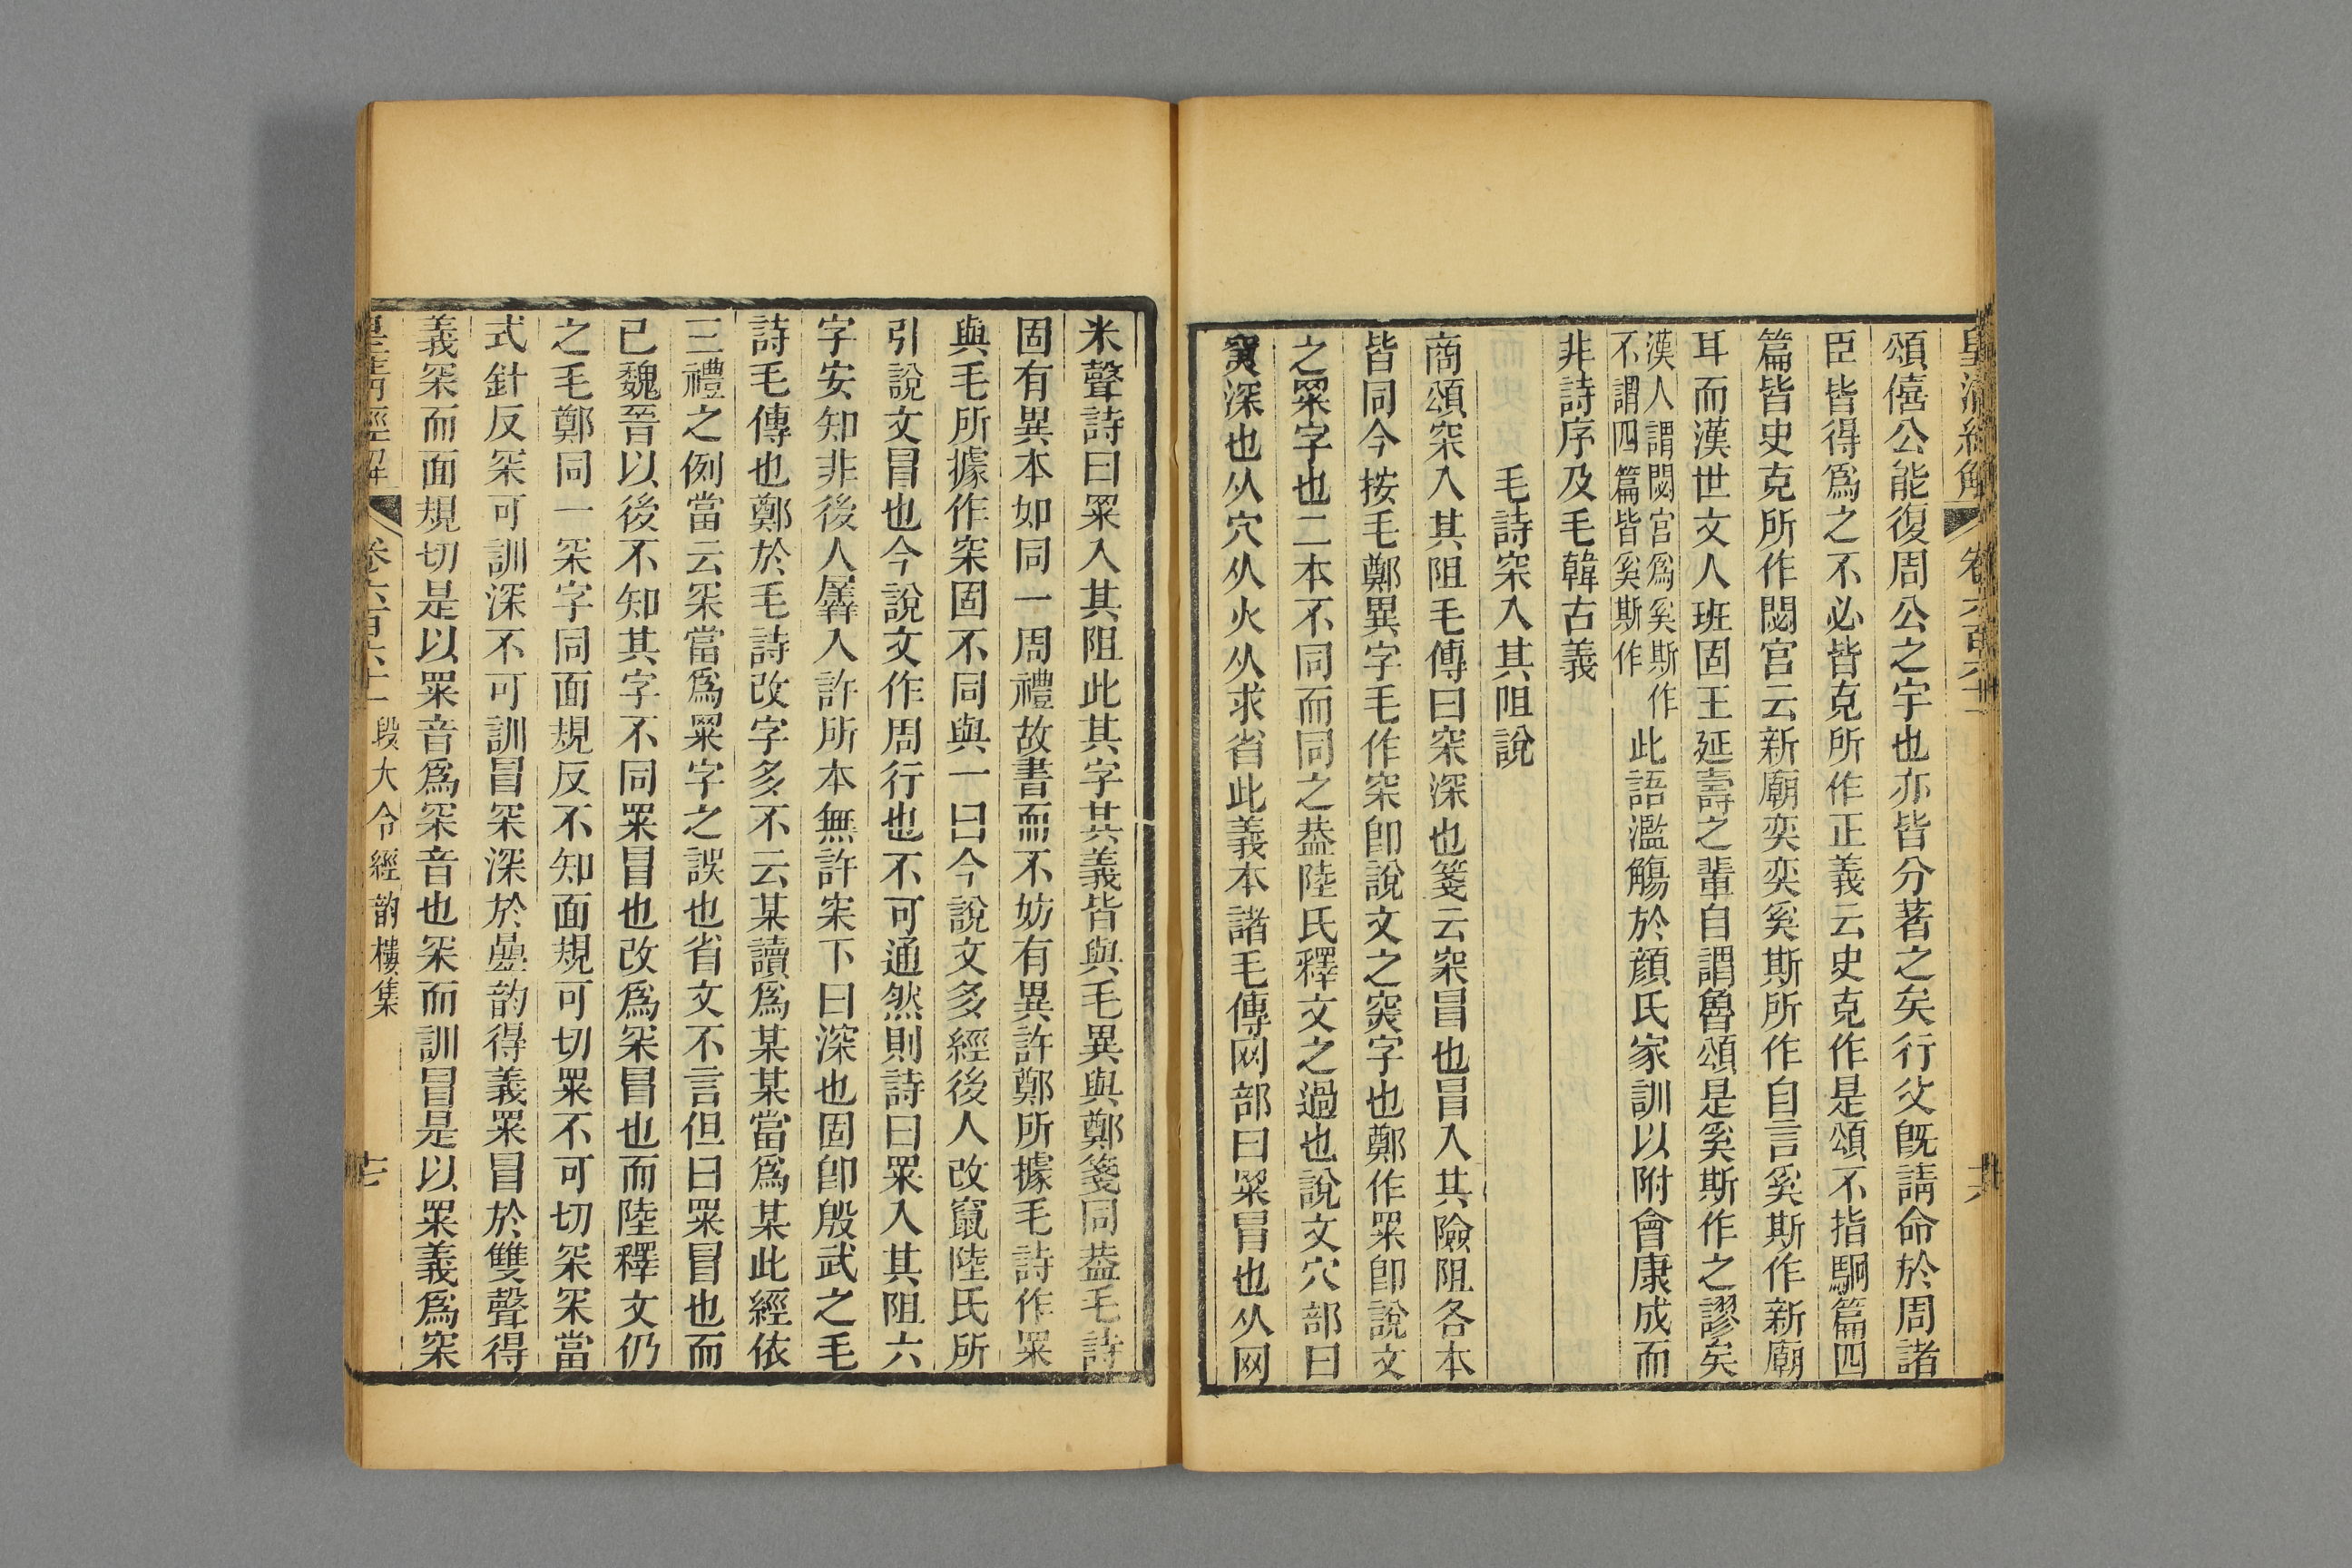 皇清經解 卷六百六十一 十六
頌僖公能復周公之宇也亦皆分著之矣行父旣請命於周諸
臣皆得爲之不必皆克所作正義云史克作是頌不指駉篇四
篇皆史克所作閟宮云新廟奕奕奚斯所作自言奚斯作新廟
耳而漢世文人班固王延壽之輩自謂魯頌是奚斯作之謬矣
漢人謂閟宮爲奚斯作
不謂四篇皆奚斯作
此語濫觴於顏氏家訓以附會康成而
非詩序及毛韓古義
毛詩冞入其阻說
商頌冞入其阻毛傳曰冞深也箋云冞冒也冒入其險阻各本
皆同今按毛鄭異字毛作冞卽說文之突字也鄭作罙卽說文
之罙字也二本不同而同之葢陸氏釋文之過也說文穴部曰
突深也从穴从火从求省此義本諸毛傳网部曰罙冒也从网
米聲詩曰罙入其阻此其字其義皆與毛異與鄭箋同葢毛詩
固有異本如同一周禮故書而不妨有異許鄭所據毛詩作罙
與毛所據作冞固不同與一曰今說文多經後人改竄陸氏所
引說文冒也今說文作周行也不可通然則詩曰罙入其阻六
字安知非後人羼入許所本無許冞下曰深也固卽殷武之毛
詩毛傳也鄭於毛詩改字多不云某讀爲某某當爲某此經依
三禮之例當云冞當爲罙字之誤也省文不言但曰罙冒也而
已魏晉以後不知其字不同罙冒也改爲冞冒也而陸釋文仍
之毛鄭同一冞字同面規反不知面規可切罙不可切冞冞當
式針反冞可訓深不可訓冒冞深於曡韵得義罙冒於雙聲得
義冞而面規切是以罙音爲冞音也冞而訓冒是以罙義爲冞
皇淸經解 卷六百六十一 段大令經韵樓集 十七